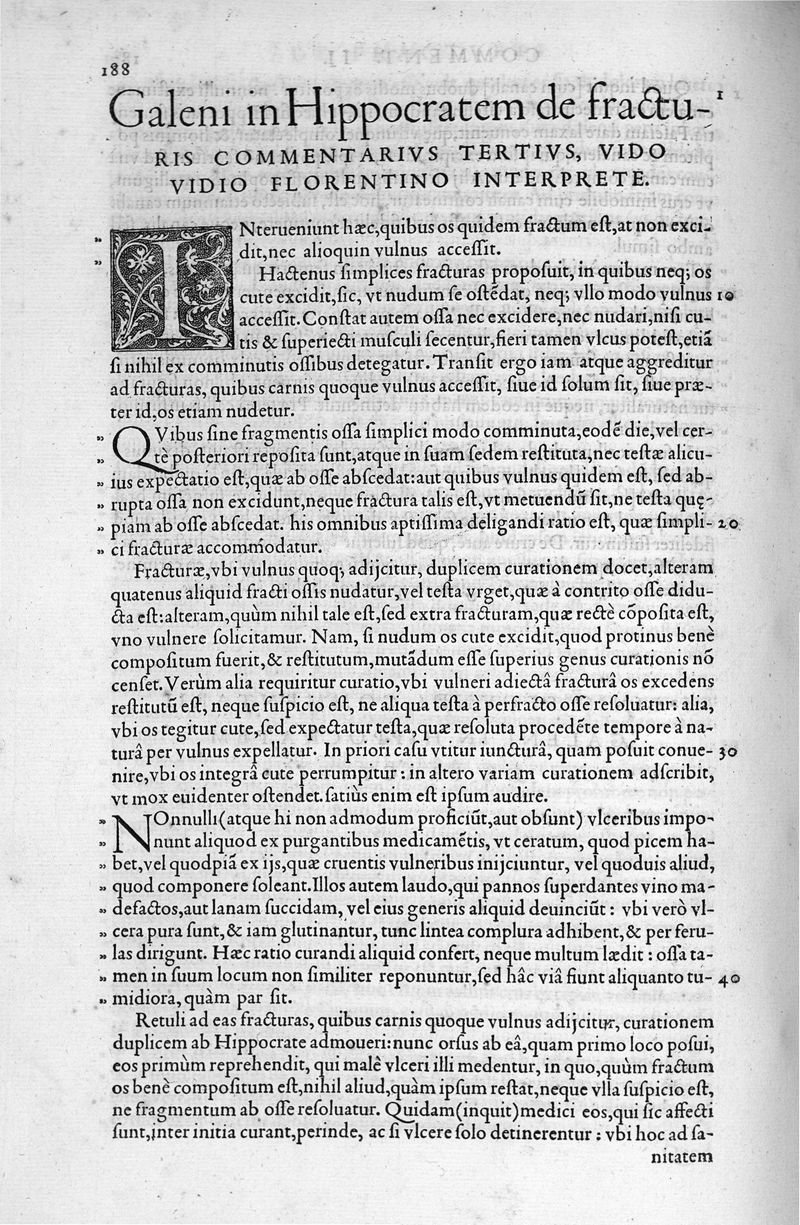 188
Galeni in Hippocratem de fractu- 1
RIS COMMENTARIVS TERTIVS, VIDO
VIDIO FLORENTINO INTERPRETE.
INterueniunt hæc, quibus os quidem fractum eſt, at non exci-
dit, nec alioquin vulnus acceſſit.
Hactenus ſimplices fracturas propoſuit, in quibus neq; os
cute excidit, ſic, vt nudum ſe oſtẽdat, neq; vllo modo vulnus 10
acceſſit. Conſtat autem oſſa nec excidere, nec nudari, niſi cu-
tis & ſuperiecti muſculi ſecentur, fieri tamen vlcus poteſt, etiã
ſi nihil ex comminutis oſſibus detegatur. Tranſit ergo iam atque aggreditur
ad fracturas, quibus carnis quoque vulnus acceſſit, ſiue id ſolum ſit, ſiue præ-
ter id, os etiam nudetur.
„ QVibus ſine fragmentis oſſa ſimplici modo comminuta, eodẽ die, vel cer-
„ tè poſteriori repoſita ſunt, atque in ſuam ſedem reſtituta, nec teſtæ alicu-
„ ius expectatio eſt, quæ ab oſſe abſcedat: aut quibus vulnus quidem eſt, ſed ab-
„ rupta oſſa non excidunt, neque fractura talis eſt, vt metuendũ ſit, ne teſta quę-
„ piam ab oſſe abſcedat. his omnibus aptiſſima deligandi ratio eſt, quæ ſimpli- 20
„ ci fracturæ accommodatur.
Fracturæ, vbi vulnus quoq; adijcitur, duplicem curationem docet, alteram
quatenus aliquid fracti oſſis nudatur, vel teſta vrget, quæ à contrito oſſe didu-
cta eſt: alteram, quùm nihil tale eſt, ſed extra fracturam, quæ rectè cõpoſita eſt,
vno vulnere ſolicitamur. Nam, ſi nudum os cute excidit, quod protinus benè
compoſitum fuerit, & reſtitutum, mutãdum eſſe ſuperius genus curationis nõ
cenſet. Verùm alia requiritur curatio, vbi vulneri adiectâ fracturâ os excedens
reſtitutũ eſt, neque ſuſpicio eſt, ne aliqua teſta à perfracto oſſe reſoluatur: alia,
vbi os tegitur cute, ſed expectatur teſta, quæ reſoluta procedẽte tempore à na-
turâ per vulnus expellatur. In priori caſu vtitur iuncturâ, quam poſuit conue- 30
nire, vbi os integrâ cute perrumpitur: in altero variam curationem adſcribit,
vt mox euidenter oſtendet. ſatiùs enim eſt ipſum audire.
„ NOnnulli (atque hi non admodum proficiũt, aut obſunt) vlceribus impo-
„ nunt aliquod ex purgantibus medicamẽtis, vt ceratum, quod picem ha-
„ bet, vel quodpiã ex ijs, quæ cruentis vulneribus inijciuntur, vel quoduis aliud,
„ quod componere ſoleant. Illos autem laudo, qui pannos ſuperdantes vino ma-
„ defactos, aut lanam ſuccidam, vel eius generis aliquid deuinciũt: vbi verò vl-
„ cera pura ſunt, & iam glutinantur, tunc lintea complura adhibent, & per feru-
„ las dirigunt. Hæc ratio curandi aliquid confert, neque multum lædit: oſſa ta-
„ men in ſuum locum non ſimiliter reponuntur, ſed hâc viâ fiunt aliquanto tu- 40
„ midiora, quàm par ſit.
Retuli ad eas fracturas, quibus carnis quoque vulnus adijcitur, curationem
duplicem ab Hippocrate admoueri: nunc orſus ab eâ, quam primo loco poſui,
eos primùm reprehendit, qui malê vlceri illi medentur, in quo, quùm fractum
os benè compoſitum eſt, nihil aliud, quàm ipſum reſtat, neque vlla ſuſpicio eſt,
ne fragmentum ab oſſe reſoluatur. Quidam (inquit) medici eos, qui ſic affecti
ſunt, inter initia curant, perinde, ac ſi vlcere ſolo detinerentur: vbi hoc ad ſa-
nitatem